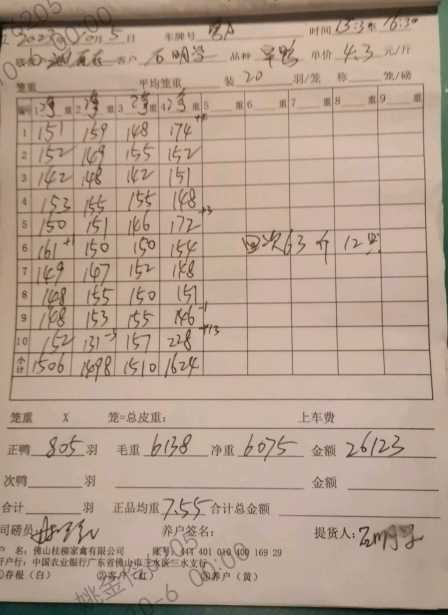 5 日 车牌号 时间 13:30 16:30
客户 石明学 品种 单价 4.3 元/斤
笼重 平均笼重 装 20 羽/笼 称 笼/磅
编号 1 净重 2 净重 3 净重 4 净重 5 重 6 重 7 重 8 重 9 重
1 151 159 148 174
2 152 149 155 152
3 142 148 142 151
4 153 155 155 148
5 150 151 146 172 +3
6 161 +1 150 150 154 回次63斤 12只
7 149 147 152 148
8 148 155 150 151
9 148 153 155 146 -1
10 152 131 -3 157 228 +13
合计 1506 1498 1510 1624
笼重 X 笼=总皮重： 上车费
正鸭 805 羽 毛重 6138 净重 6075 金额 26123
次鸭 羽 金额
合计 羽 正品均重 7.55 合计总金额
司磅员： 养户签名： 提货人：
户 名：佛山桂柳家禽有限公司 账号：447 401 010 400 169 29
开户行：中国农业银行广东省佛山市三水区三水支行
①存根（白） ②客户（红） ③养户（黄）